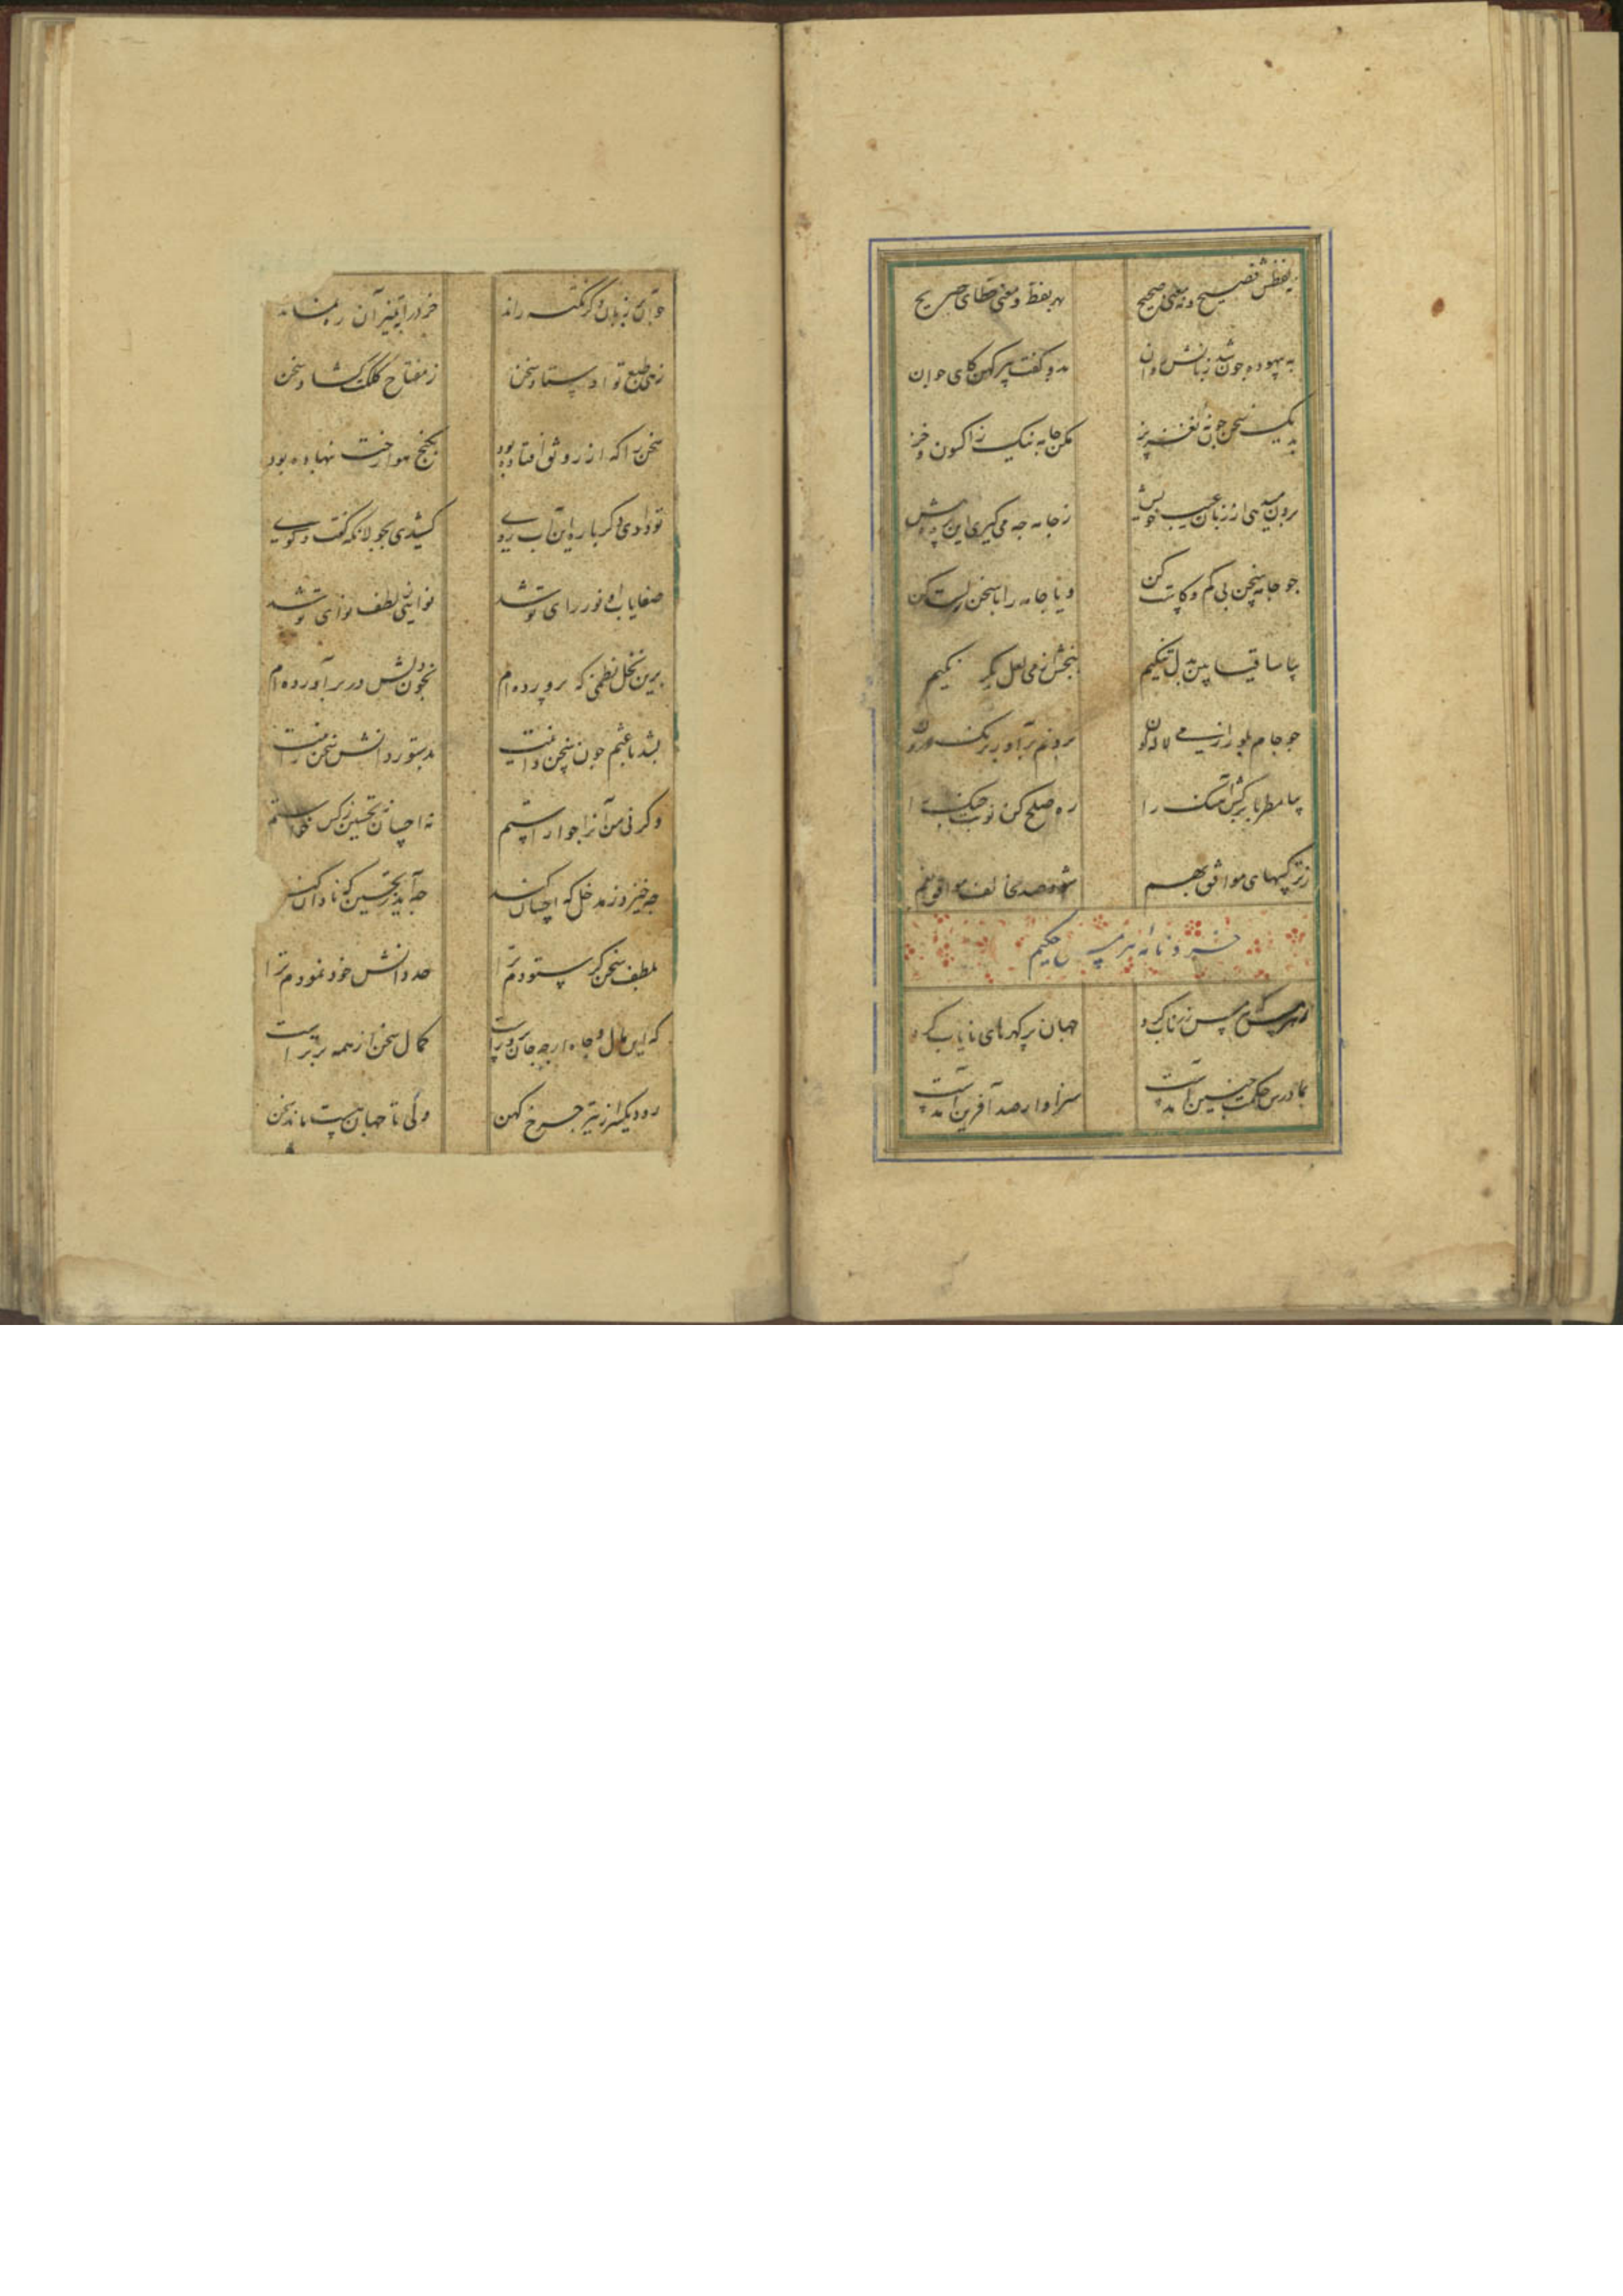 نه لفظش فصیح و نه معنی صحیح بهر لفظ و معنی خطای صریح
به بیهوده جون شد زبانش روان بدو گفت پیر کهن کای جوان
یک سخن جون نغز پز مکن جامه نیک ز اکسون و خز
برون میدهی از زبان عیب خویش ز جامه جه می گیری این پرده پیش
جو جامه سخن بی کم و کاست کن و یا جامه را با سخن راست کن
بیا ساقیا بین بدلتنگیم ببخش از می لعل یکرنگیم
جو جام بلور از می لاله گون برونم برآور برنگ درون
بیا مطربا برکش آهنگ را ره صلح کن نوبت جنگ را
ز ترکیبهای موافق بهم شود صد مخالف موافق
خردنامه هرمس حکیم
جهان پر گهرهای نایاب کرد
بما درس حکمت جنین آمدست سزاوار صد آفرین آمدست
دگر نکته راند
زهی طبع تو اوستاد سخن ز مفتاح کلکت گشاد سخن
سخن را که از رونق افتاده بود بکنج هوان رخت بنهاده بود
تو دادی دگر باره این آب روی کشیدی بجولانگه گفت و گوی
صفایاب از نور رای تو شد نوایی ز لطف نوای تو شد
برین نخل نظمی که پرورده ام بخون دلش در بر آورده ام
بشد باعثم جون سخن دانیت بدستور دانش سخن رانیت
وگر نی من آنرا جو آراستم نه احسان نه تحسین ز کس خواستم
جه خیزد ز مدخل که احسان کند جه آید ز تحسین که نادان کند
بلطف سخن گر ستودم ترا حد دانش خود نمودم ترا
که این مال و جاه ارجه جان پرورست کمال سخن از همه برترست
رود دیگر از زیر جرخ کهن ولی تا جهان هست ماند سخن